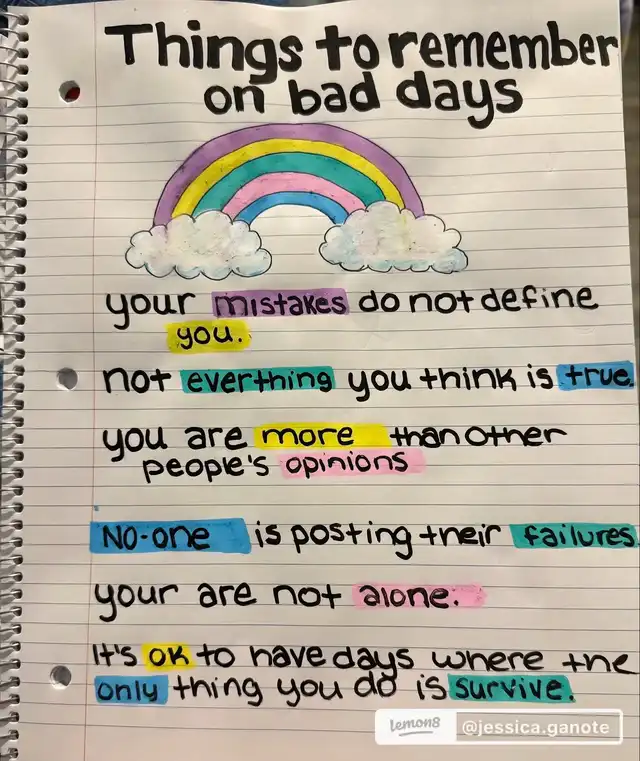 Things to remember
on bad days
your mistakes do not define
you.
not everthing you think is true.
you are more than other
people's opinions
No-one is posting their failures.
your are not alone.
It's ok to have days where the
only thing you do is survive.
lemon8 @jessica.ganote